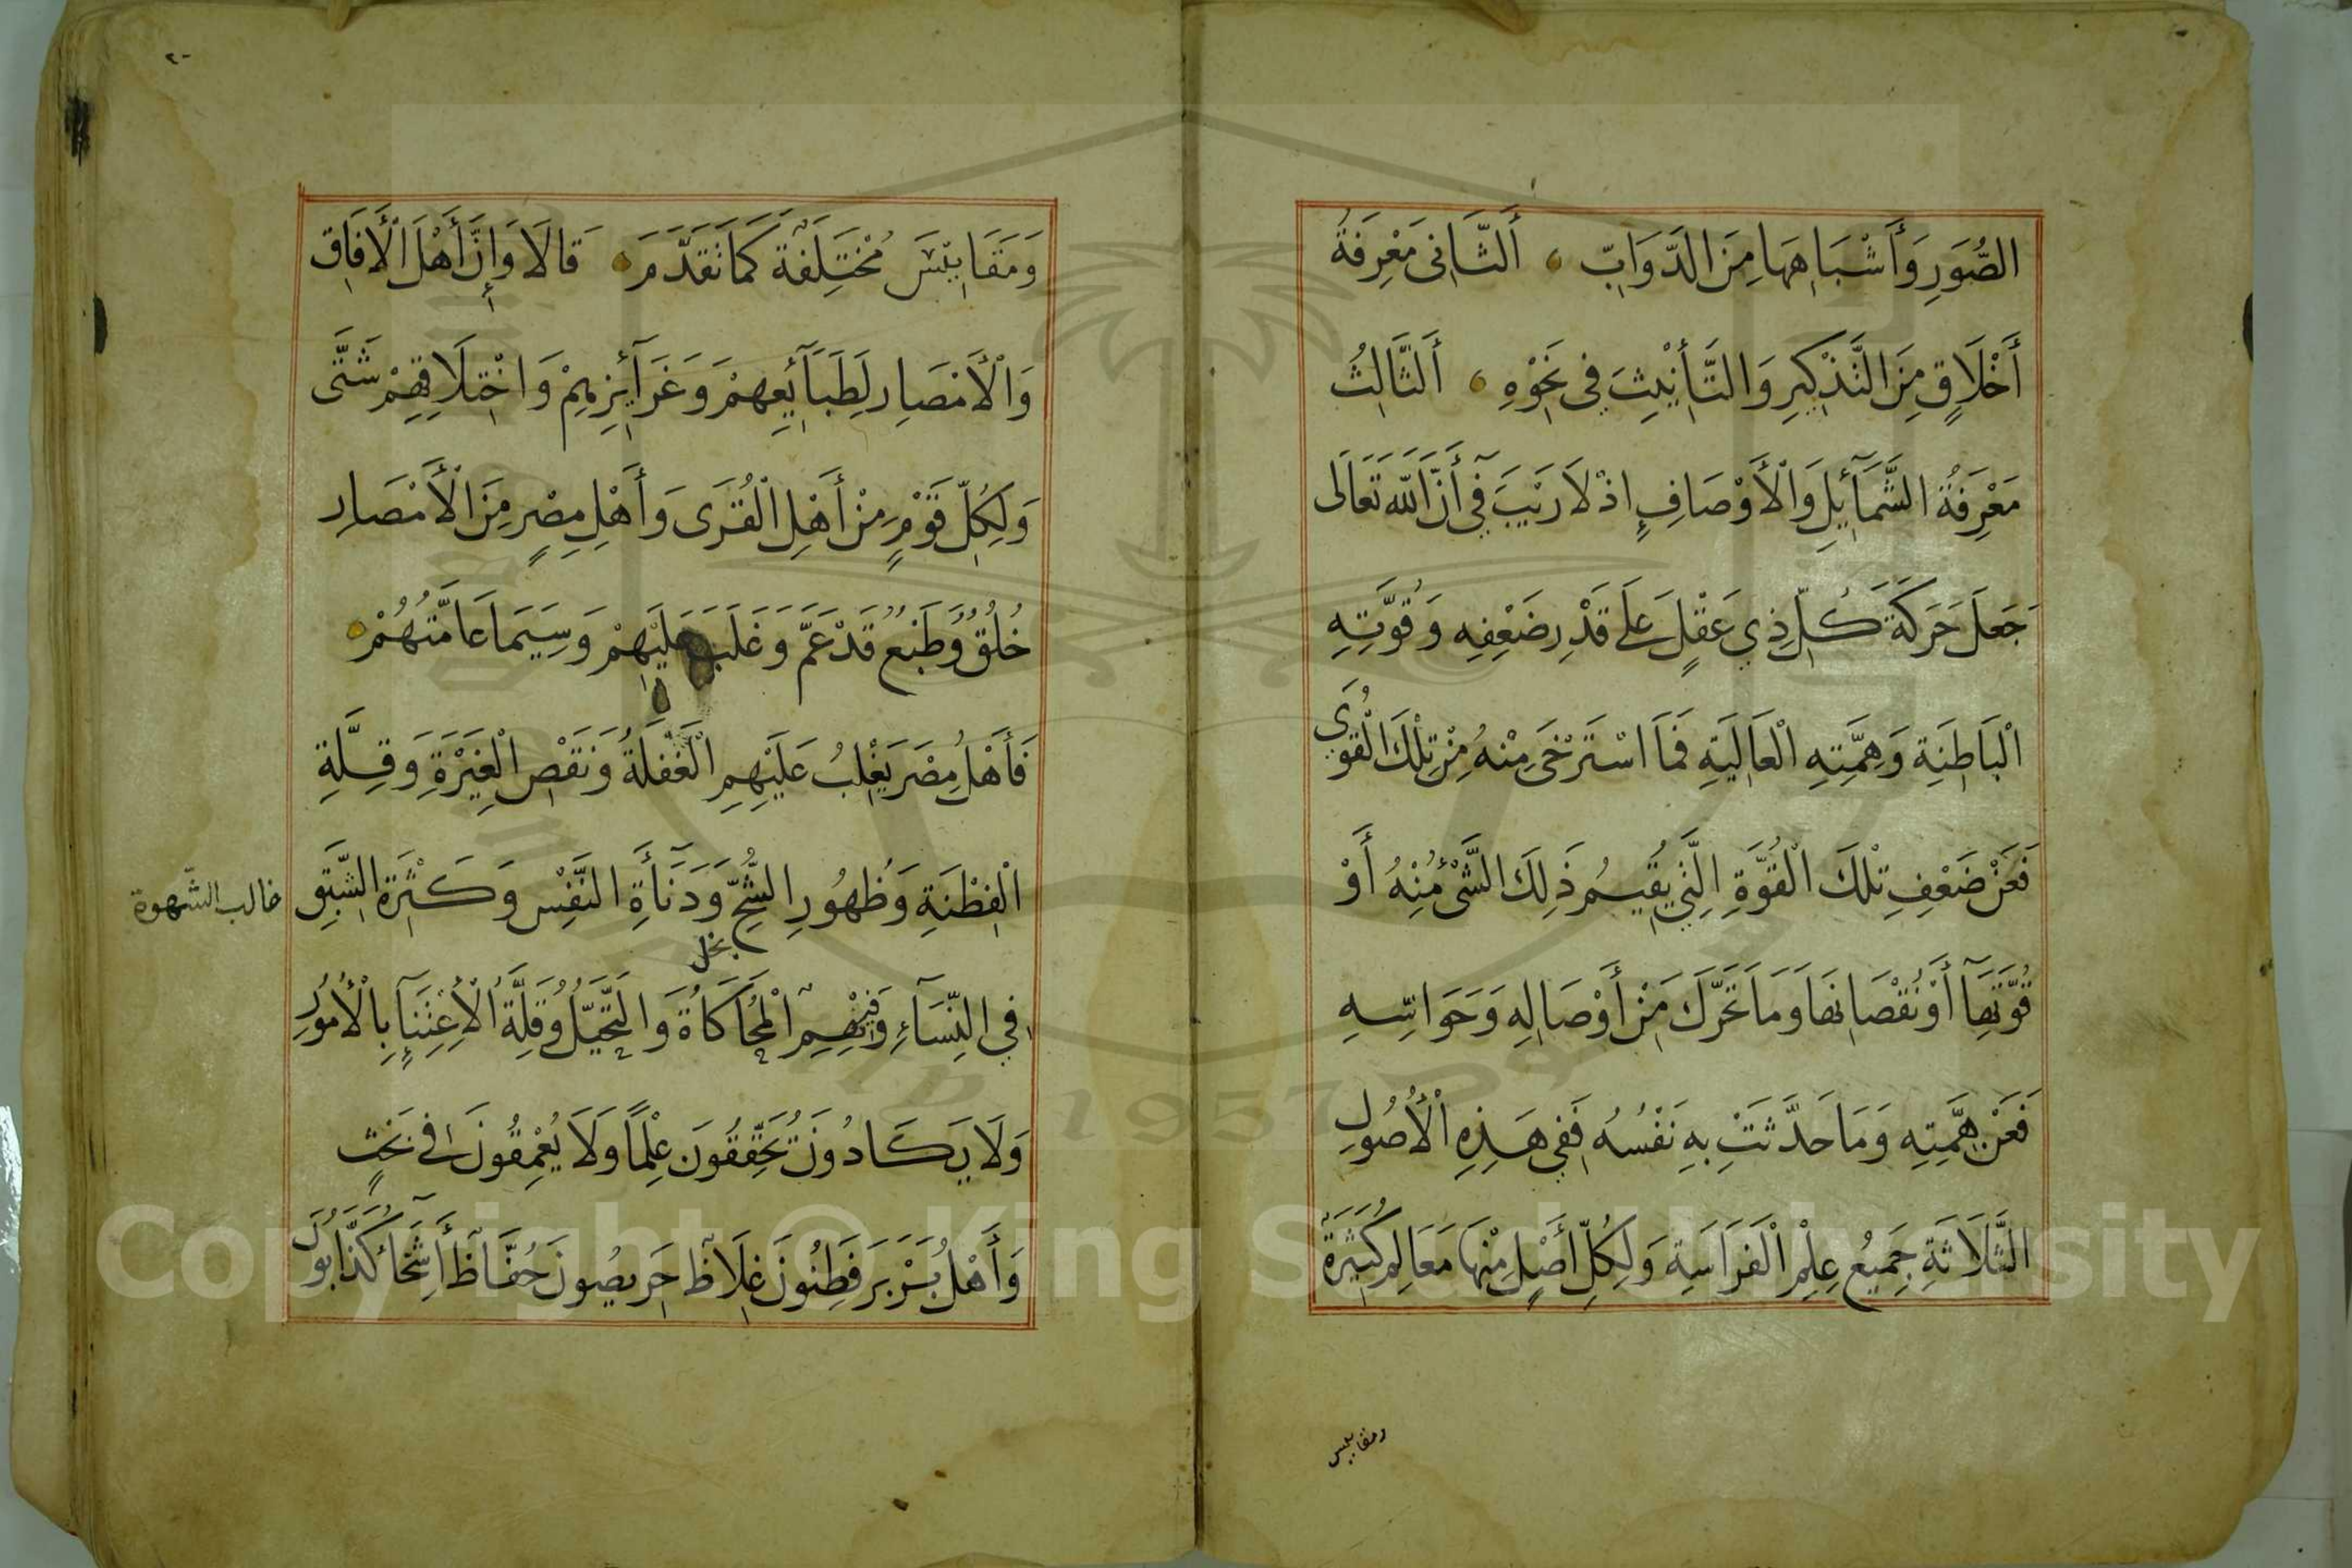 الصُّوَرِ وَأَشْبَاهِهَا مِنَ الدَّوَابِّ ، أَلثَّانِى مَعْرِفَةُ
أَخْلَاقٍ مِنَ التَّذْكِيرِ وَالتَّأْنِيْثِ فِي نَحْوِهِ ، أَلثَّالِثُ
مَعْرِفَةُ الشَّمَآئِلِ وَالْأَوْصَافِ اِذْ لَا رَيْبَ فِي أَنَّ اللّٰهَ تَعَالَى
جَعَلَ حَرَكَةَ كُلِّ ذِي عَقْلٍ عَلَى قَدْرِ ضَعْفِهِ وَقُوَّتِهِ
الْبَاطِنَةِ وَهِمَّتِهِ الْعَالِيَةِ فَمَا اسْتَرْخَى مِنْهُ مِنْ تِلْكَ الْقُوَى
فَعَنْ ضَعْفِ تِلْكَ الْقُوَّةِ الَّتِي يُقِيمُ ذَلِكَ الشَّىْءُ مِنْهُ أَوْ
قُوَّتِهَآ أَوْ نُقْصَانِهَا وَمَا تَحَرَّكَ مِنْ أَوْصَالِهِ وَحَوَاسِّهِ
فَعَنْ هِمَّتِهِ وَمَا حَدَّثَتْ بِهِ نَفْسُهُ فَفِي هَذِهِ الْأُصُولِ
الثَّلَاثَةِ جَمِيْعُ عِلْمِ الْفَرَاسَةِ وَلِكُلِّ أَصْلٍ مِنْهَا مَعَالِمُ كَثِيرَةٌ
ومقاييس
٢٠
وَمَقَايِيْسَ مُخْتَلِفَةً كَمَا تَقَدَّمَ ، قَالَا وَإِنَّ أَهْلَ الْأَفَاقِ
وَالْأَمْصَارِ لَطَبَآئِعِهِمْ وَغَرَآئِزِهِمْ وَاخْتِلَافِهِمْ شَتَّى
وَلِكُلِّ قَوْمٍ مِنْ أَهْلِ الْقُرَى وَأَهْلِ مِصْرٍ مِنَ الْأَمْصَارِ
خُلُقٌ وَطَبْعٌ قَدْ عَمَّ وَغَلَبَ عَلَيْهِمْ وَسِيَمَا عَامَّتُهُمْ ،
فَأَهْلُ مِصْرَ يَغْلِبُ عَلَيْهِمِ الْغَفْلَةُ وَنَقْصُ الْغِيْرَةِ وَقِلَّةِ
الْفِطْنَةِ وَظُهُورِ الشُّحِّ وَدَنَآءَةِ النَّفْسِ وَكَثْرَةِ الشَّبَقِ
بخل
غالب الشّهوة
فِي النِّسَآءِ وَفِيْهِمِ الْمُحَاكَاةُ وَالتَّحَيُّلُ وَقِلَّةُ الْاِعْتِنَآءِ بِالْأُمُورِ
وَلَا يَكَادُونَ يُحَقِّقُونَ عِلْمًا وَلَا يُعْمِقُونَ فِى بَحْثٍ
وَأَهْلُ بَرْبَرَ فَطِنُونَ غِلَاظٌ حَرِيصُونَ حُفَّاظٌ أَشِحَّآءُ كَذَّابُونَ